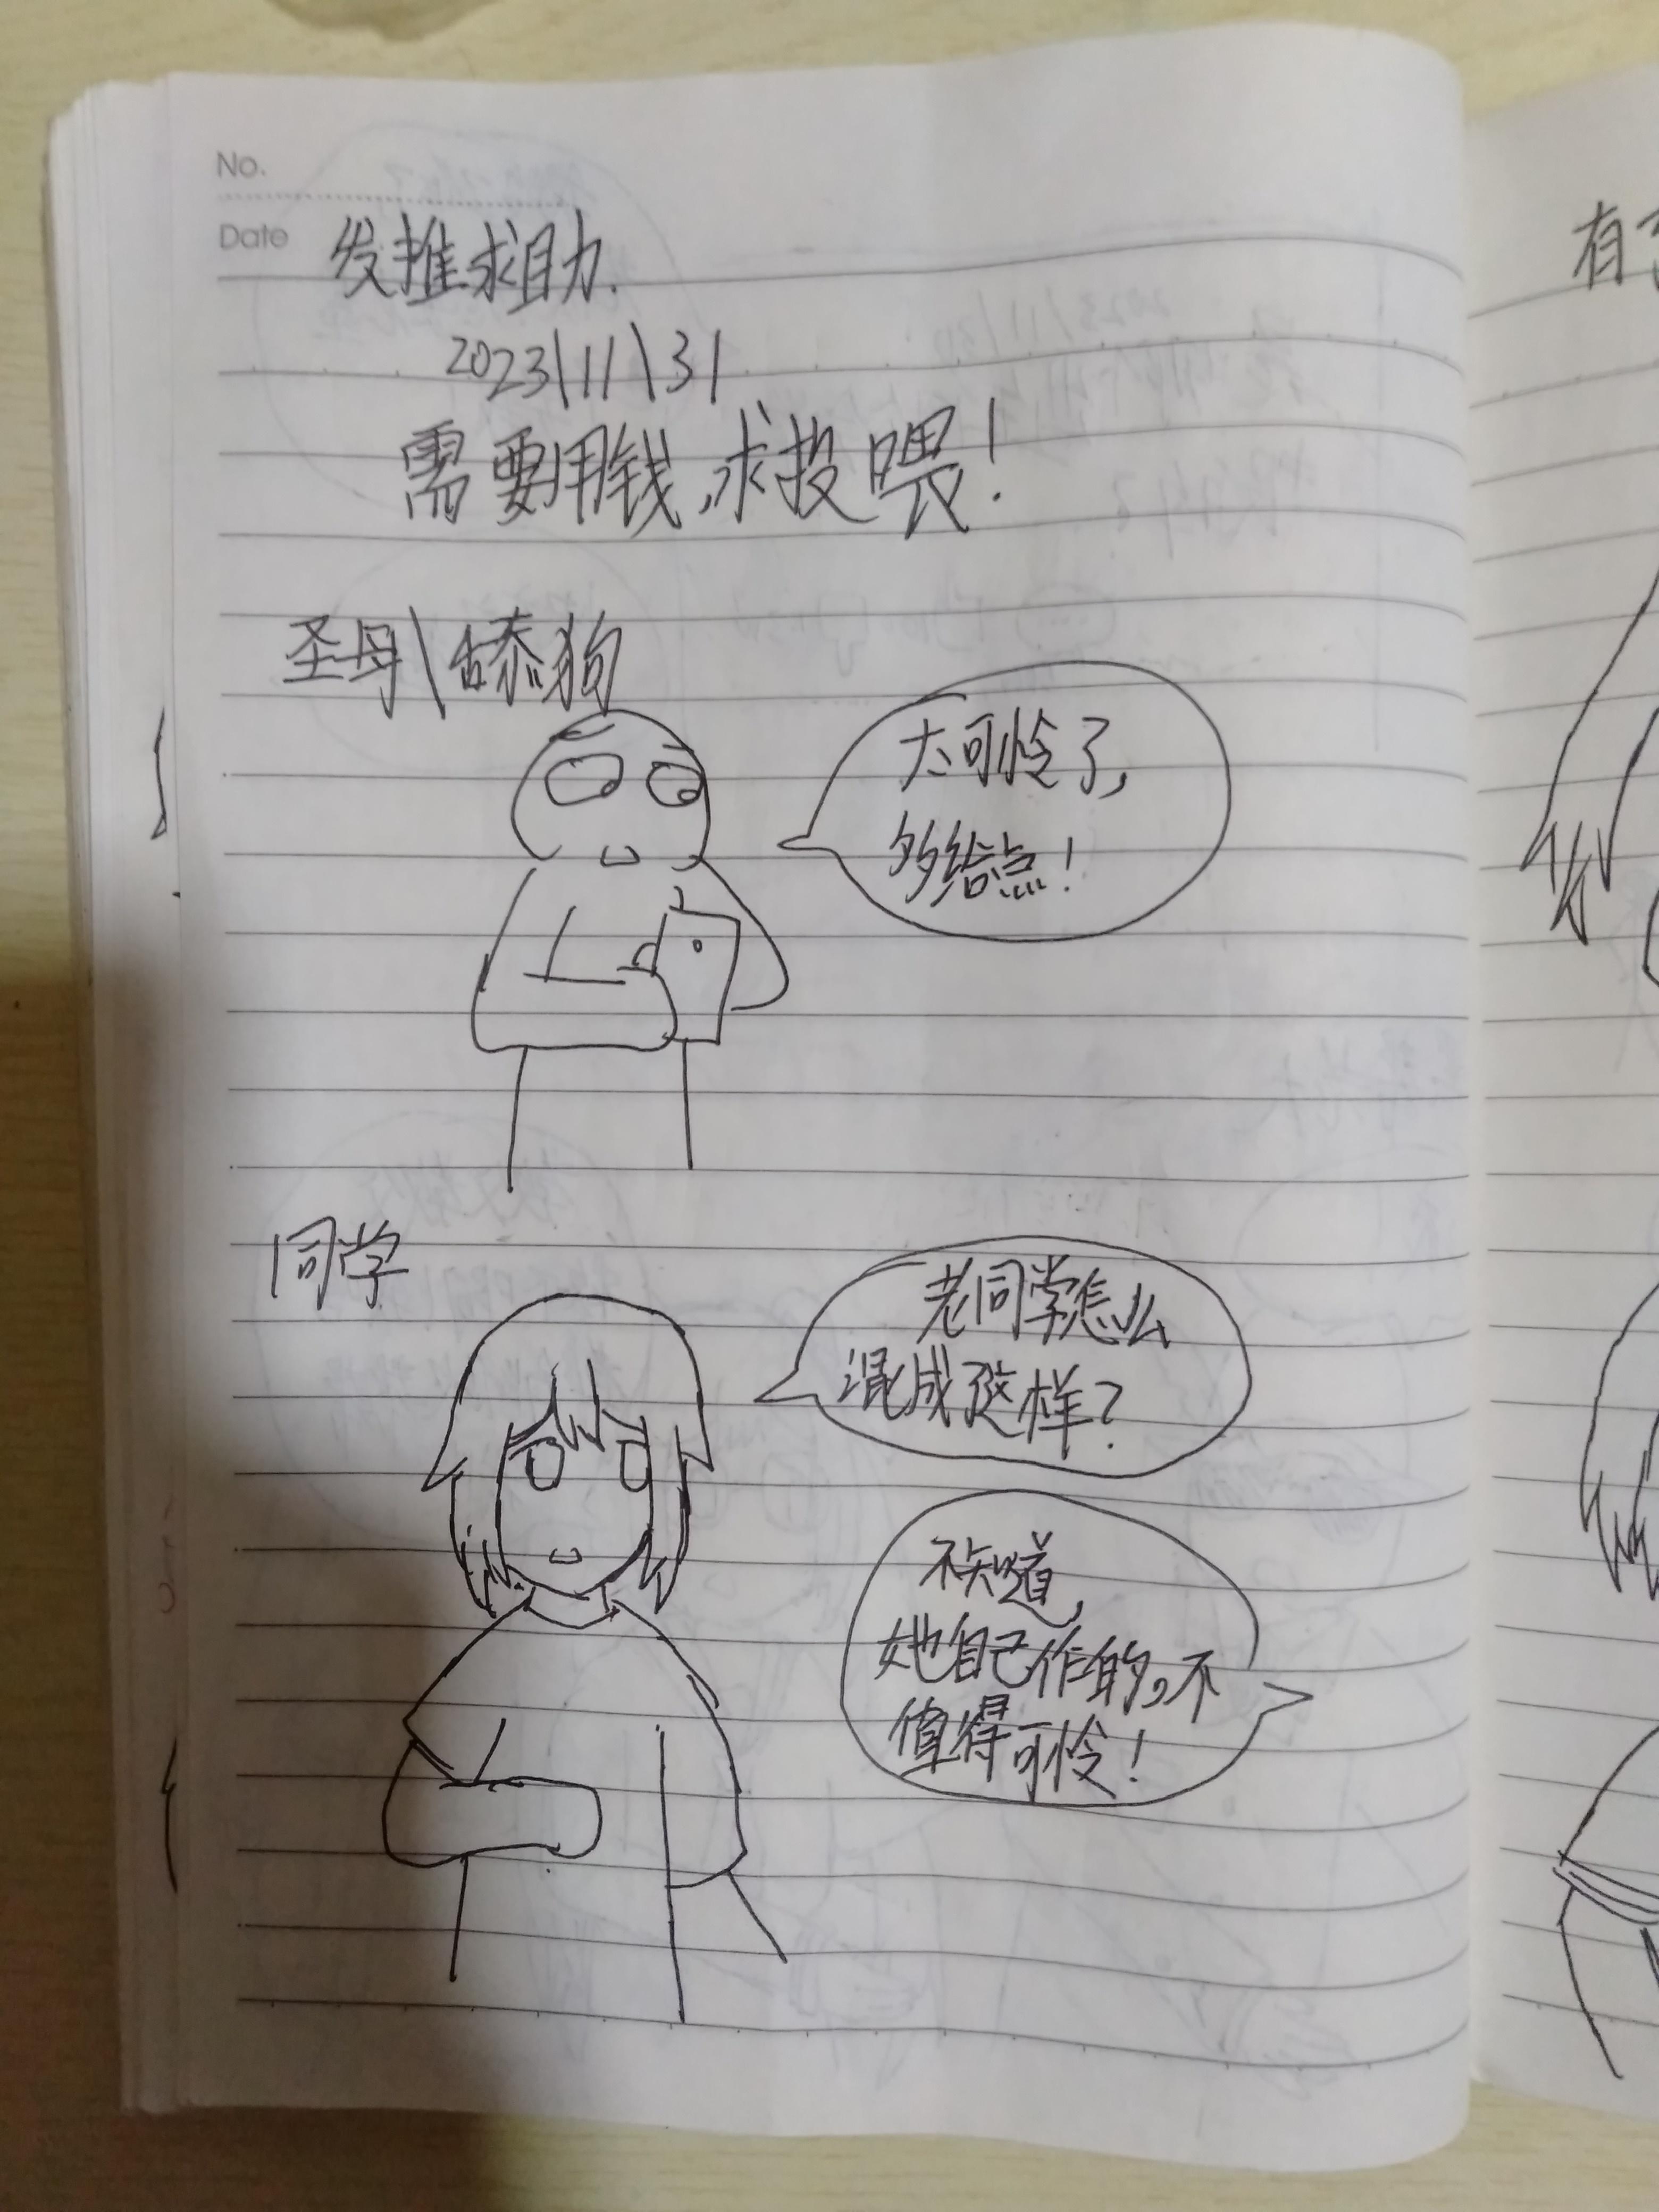 No.
Date
发推求助.
2023\11\31
需要用钱,求投喂!
圣母\舔狗
太可怜了,
多给点!
同学
老同学怎么
混成这样?
不知道,
她自己作的,不
值得可怜!
有